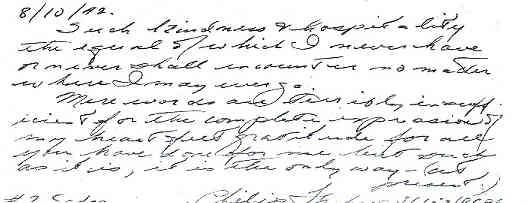 8/10/42.
Such kindness & hospitality
the equal of which I never have
or never shall encounter no matter
where I may ever go.
Mere words are terribly insuff
icient for the complete expression of
my heart felt gratitude for all
you have done for me but such
as it is, it is the only way - (at
present.)
#2 Philip